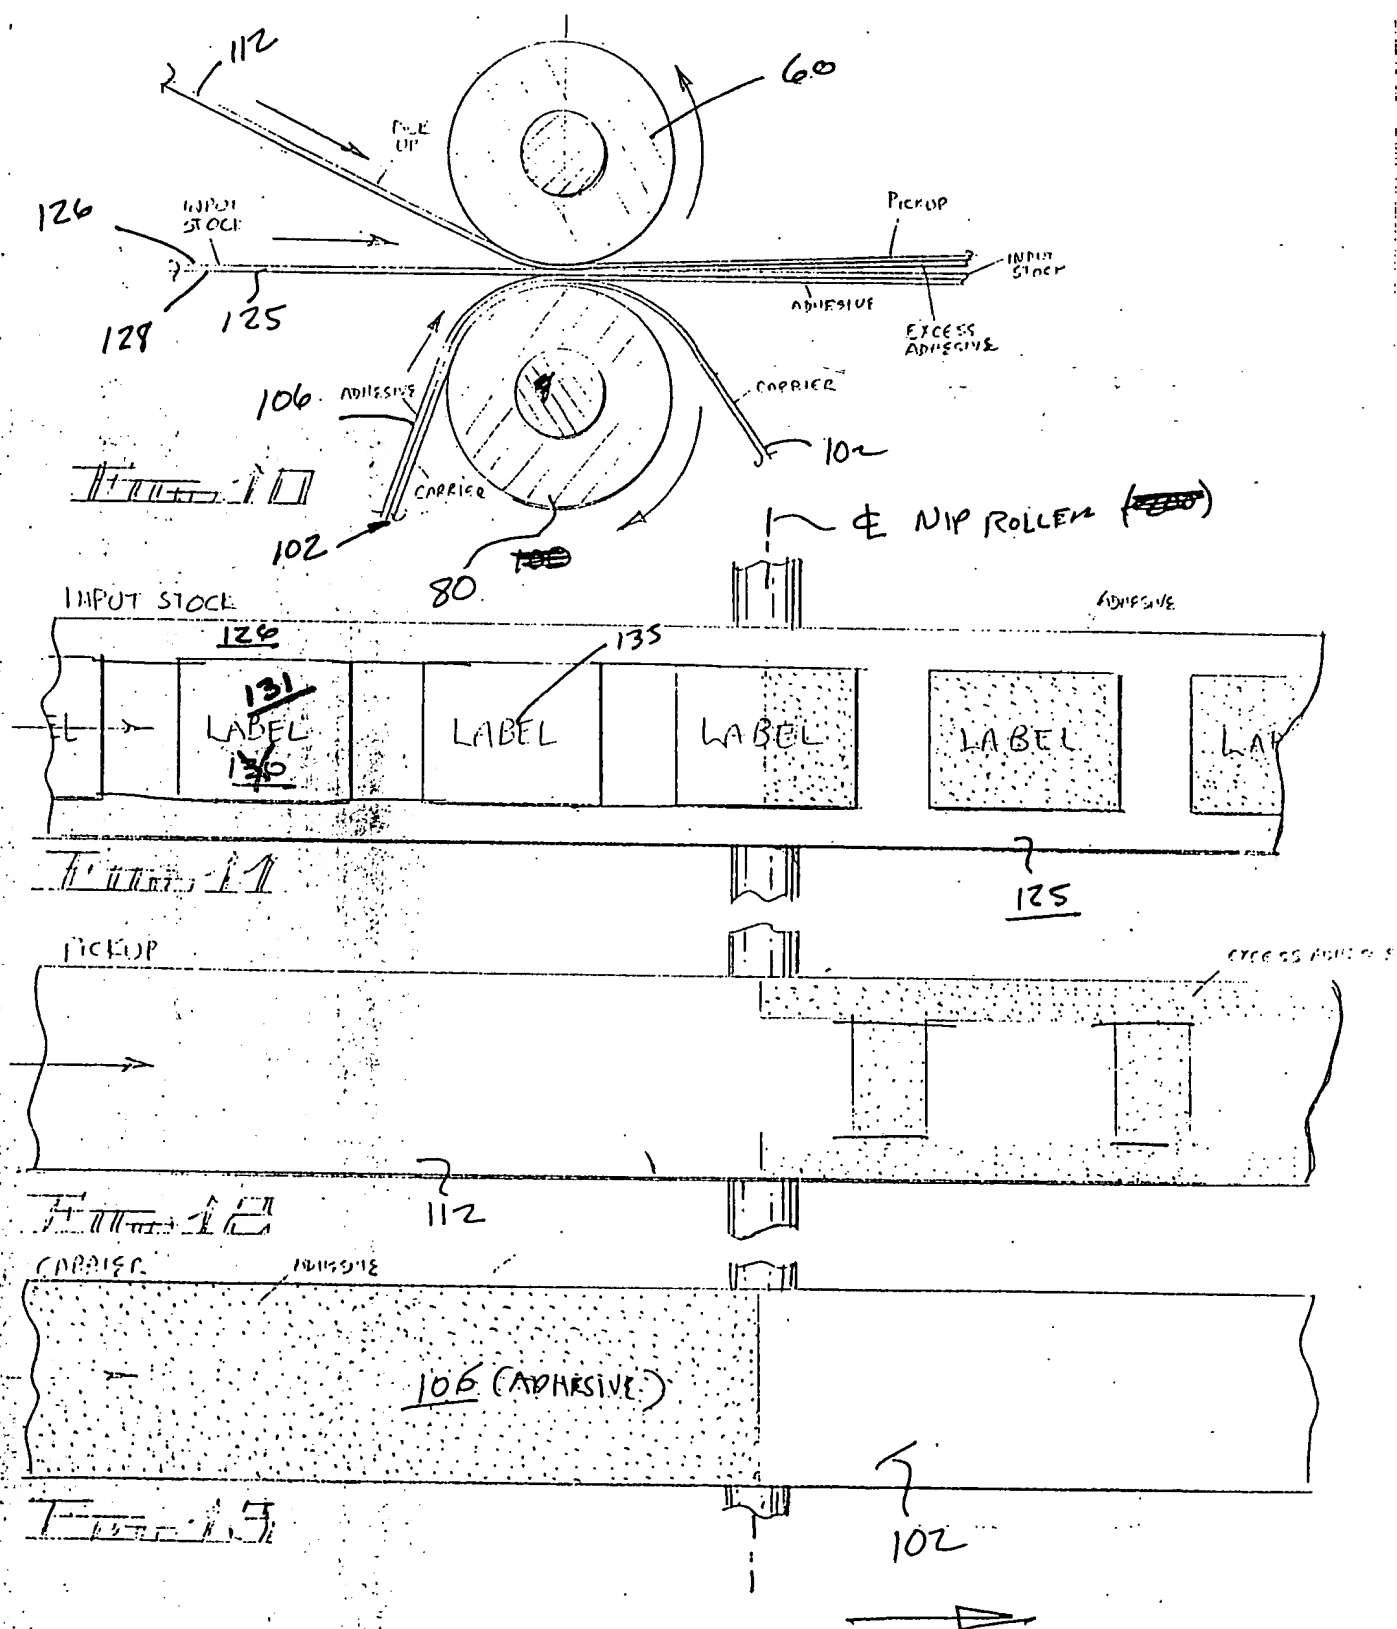 112
60
PICK
UP
126
INPUT
STOCK
PICKUP
INPUT
STOCK
128
125
ADHESIVE
EXCESS
ADHESIVE
106
ADHESIVE
CARRIER
102
Fig. 10
CARRIER
102
80
℄ NIP ROLLER
INPUT STOCK
ADHESIVE
126
135
131
EL
LABEL
LABEL
LABEL
LABEL
LAB
130
Fig. 11
125
PICKUP
EXCESS ADHES
Fig. 12
112
CARRIER
ADHESIVE
106 (ADHESIVE)
Fig. 13
102